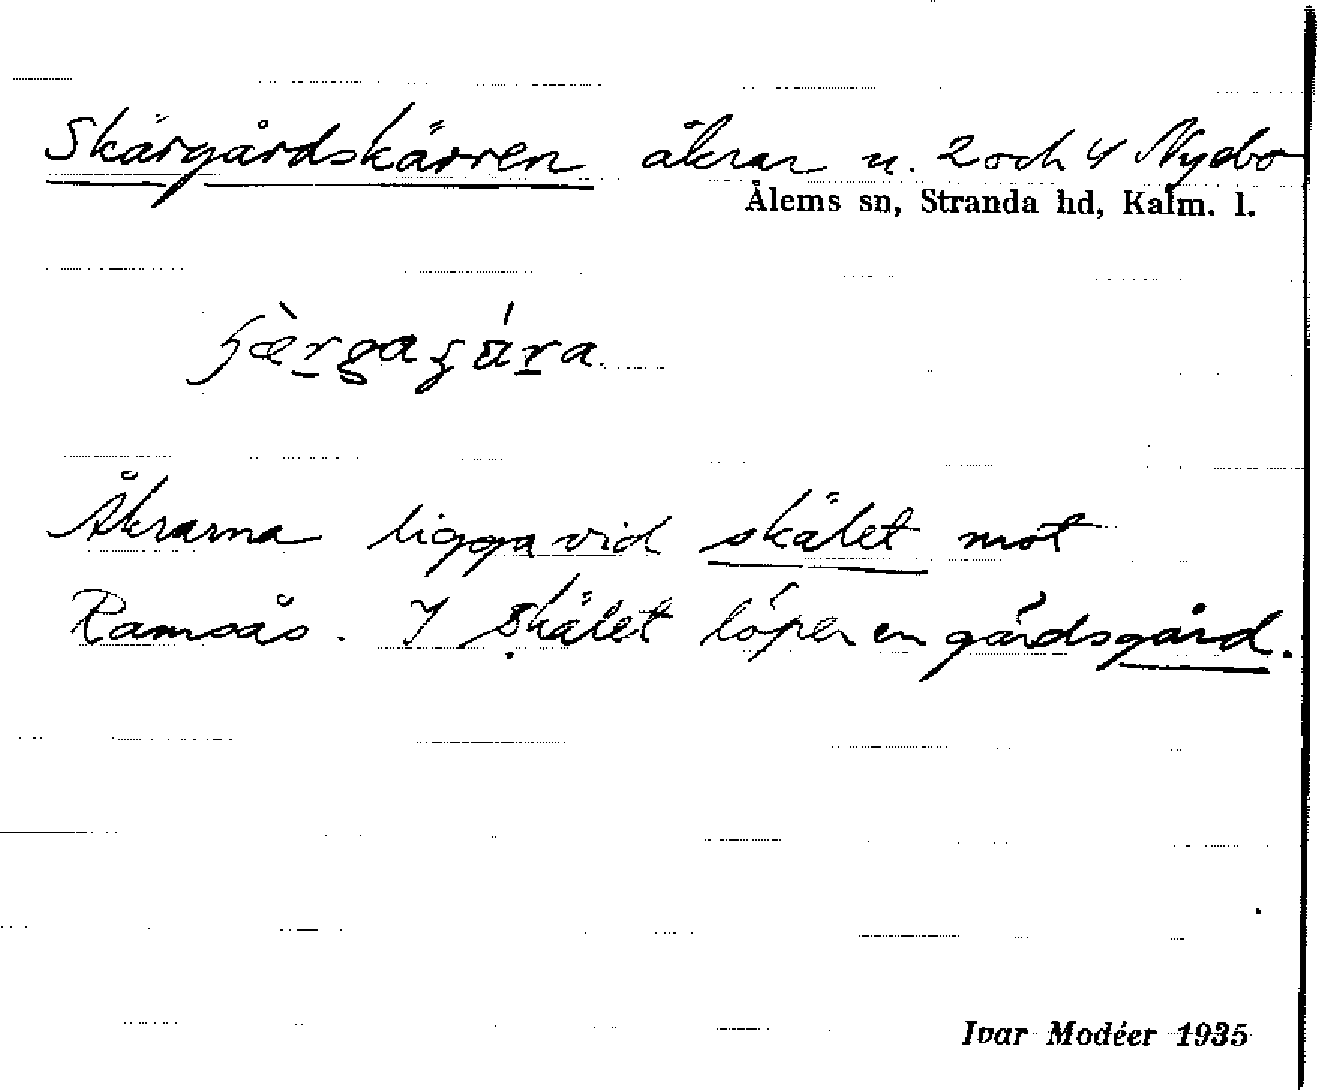 Skärgårdskärren åkrar u. 2 och 4 Nybo
Ålems sn, Stranda hd, Kalm. l.
Åkrarna ligga vid skälet mot
Ramsås. I skälet löper en gärdsgård.
Ivar Modéer 1935